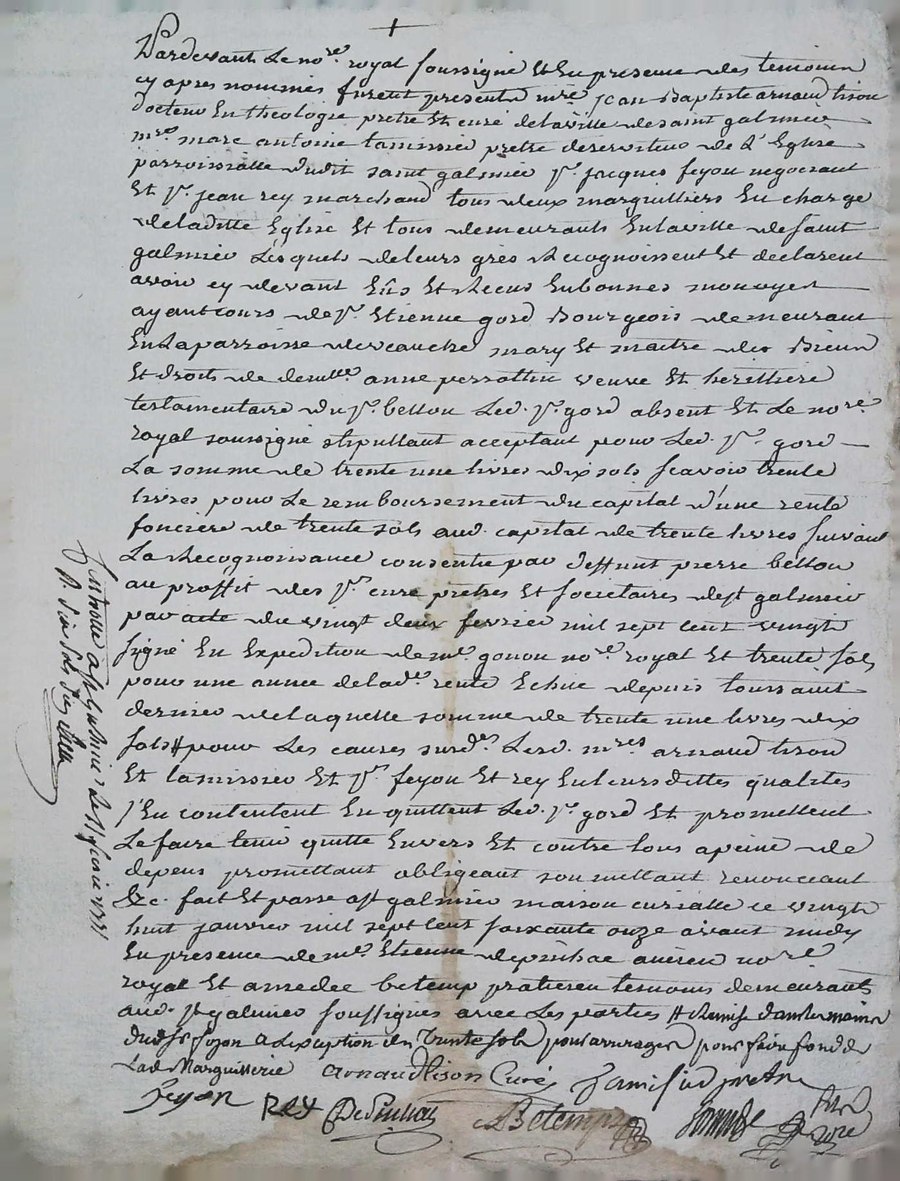 +
Pardevant Le no.re royal soussigné Et En presence des temoins
cy apres nommés furent presents m.re jean Baptiste arnaud tison
docteur En theologie pretre Et curé delaville desaint galmier
m.re marc antoine lamissier pretre deserviteur de L'Eglise
parroissialle dudit saint galmier s.r jacques feyon negociant
Et s.r jean rey marchand tous deux marguilliers En charge
deladitte Eglise Et tous demeurants Enlaville desaint
galmier Lesquels deleurs grés Recognoissent Et declarent
avoir cy devant Eûs Et Recus Enbonnes monoyes
ayant cours de s.r Etienne gord Bourgeois demeurant
En Laparroisse deveauche mary Et maitre des Biens
Et droits de demlle anne perrottin veuve Et heritiere
testamentaire du s.r bellou Led. s.r gord absent Et Le no.re
royal soussigné stipullant acceptant pour Led. s.r gord
La somme de trente une livres dix sols scavoir trente
livres pour Le remboursement du capital d'une rente
fonciere de trente sols aud. capital de trente livres suivant
La Recognoissance consentie par deffunt pierre bellou
au proffit des s.rs curé pretres Et societaires dest galmier
par acte du vingt deux fevrier mil sept cent vingt
signé En Expedition de m.e gonon no.re royal Et trente sols
pour une année delad.e rente Echue depuis toussaint
dernier delaquelle somme de trente une livres dix
sols # pour Les causes susd.es Lesd. m.res arnaud tison
Et lamissier Et s.rs feyon Et rey Enleursdittes qualités
s'En contentent En quittent Led. s.r gord Et promettent
Le faire tenir quitte Envers Et contre tous apeine de
depens promettant obligeant soumettant renonceant
&c. fait Et passé ast galmier maison curialle ce vingt
huit janvier mil sept cent soixante onze avant midy
En presence de m.e Etienne depinhac no.re
royal Et amedée betemp praticien temoins demeurants
aud. st galmier soussignés avec Les parties # Remise dans les mains
dud. sr feyon a L'exception des trente sols pour arrerages pour faire fond de
Lad. Marguillerie arnaud tison Curé Lamissier pretre
feyon REY Depinhac Betemps
Controllé a st galmier le fevrier 1771
R. sols